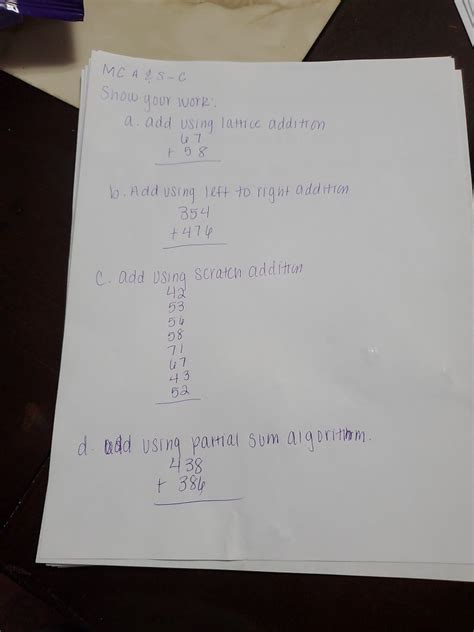 MC A & S-C
Show your work:
a. add using lattice addition
67
+ 58
b. Add using left to right addition
354
+476
c. add using scratch addition
42
53
56
58
71
67
43
52
d. add using partial sum algorithm.
438
+ 386